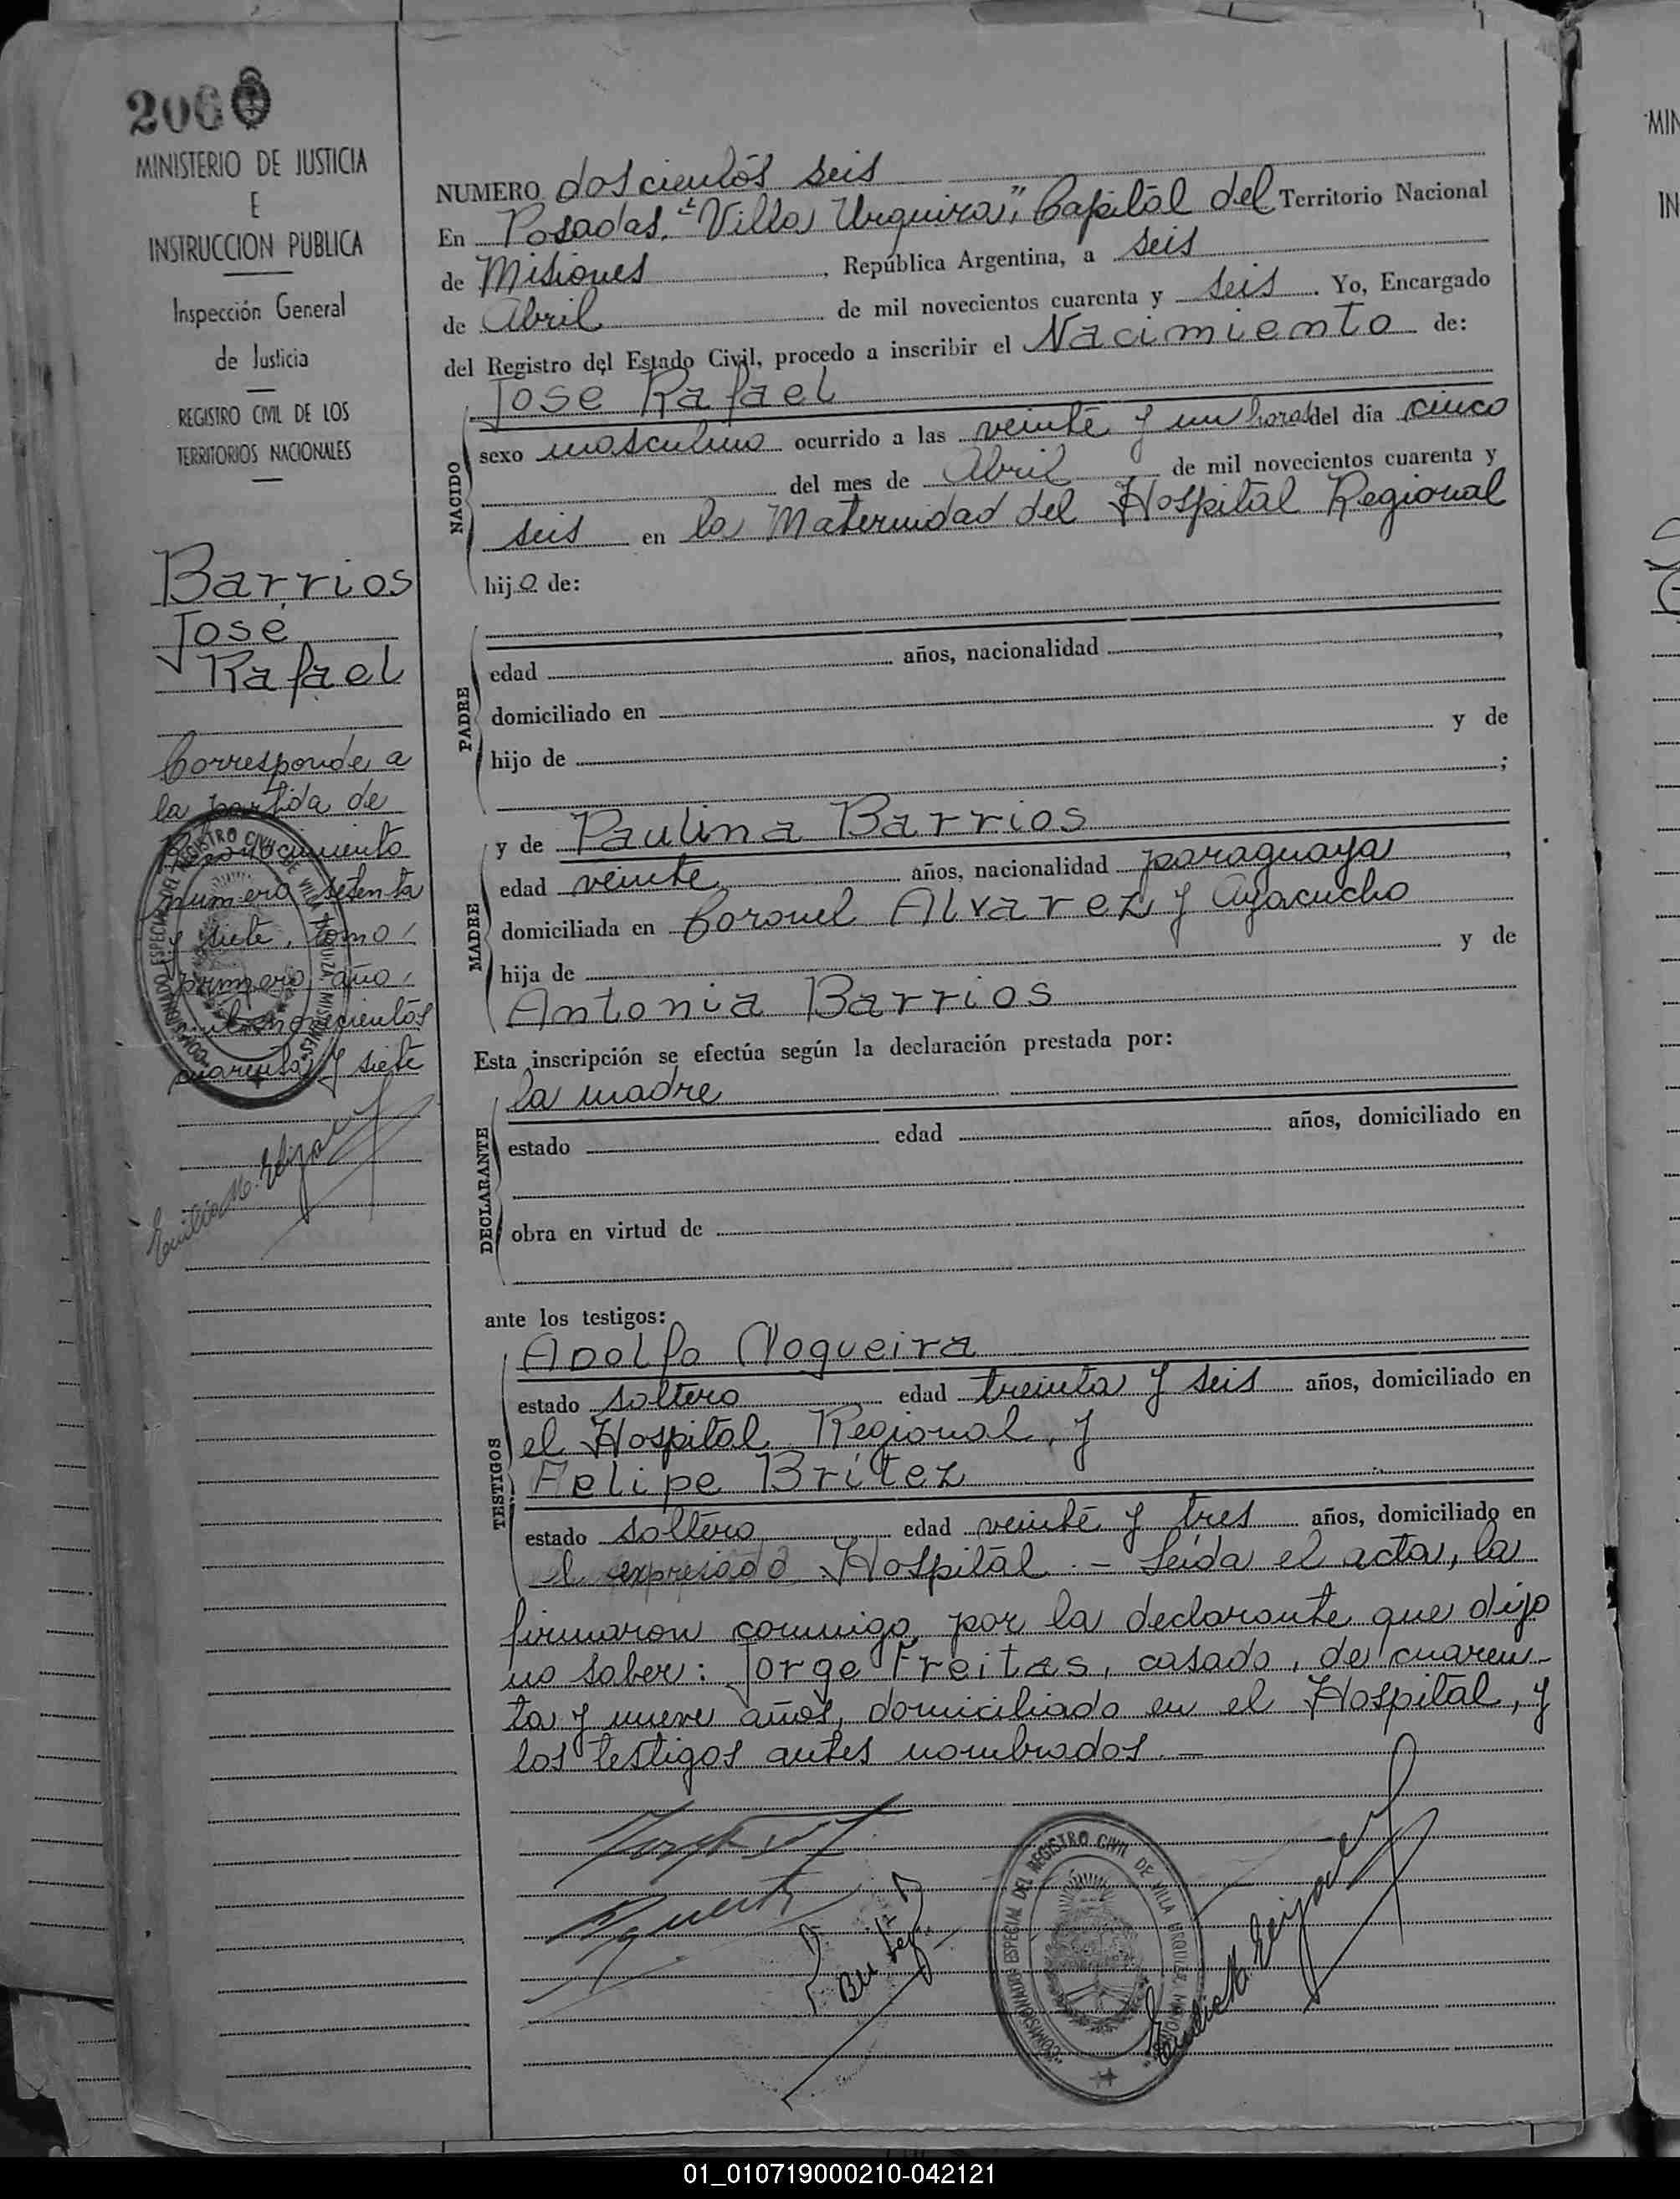 206
MINISTERIO DE JUSTICIA
E
INSTRUCCION PUBLICA
Inspección General
de Justicia
REGISTRO CIVIL DE LOS
TERRITORIOS NACIONALES
Barrios
José
Rafael
Corresponde a
la partida de
Reconocimiento
numero setenta
y siete, tomo
primero, año
mil novecientos
cuarenta y siete
NUMERO doscientos seis
En Posadas, "Villa Urquiza", Capital del Territorio Nacional
de Misiones, República Argentina, a seis
de Abril de mil novecientos cuarenta y seis. Yo, Encargado
del Registro del Estado Civil, procedo a inscribir el Nacimiento de:
NACIDO
José Rafael
sexo masculino ocurrido a las veinte y un horas del día cinco
del mes de Abril de mil novecientos cuarenta y
seis en la Maternidad del Hospital Regional
hijo de:
PADRE
edad años, nacionalidad ,
domiciliado en
hijo de y de
;
MADRE
y de Paulina Barrios
edad veinte años, nacionalidad paraguaya,
domiciliada en Coronel Alvarez y Ayacucho
hija de y de
Antonia Barrios
Esta inscripción se efectúa según la declaración prestada por:
DECLARANTE
la madre
estado edad años, domiciliado en
obra en virtud de
ante los testigos:
TESTIGOS
Adolfo Nogueira
estado soltero edad treinta y seis años, domiciliado en
el Hospital Regional, y
Felipe Brítez
estado soltero edad veinte y tres años, domiciliado en
el expresado Hospital.- Leída el acta, la
firmaron conmigo, por la declarante que dijo
no saber: Jorge Freitas, casado, de cuaren-
ta y nueve años, domiciliado en el Hospital, y
los testigos antes nombrados.-
COMISIONADO ESPECIAL DEL REGISTRO CIVIL DE VILLA URQUIZA MISIONES
01_010719000210-042121